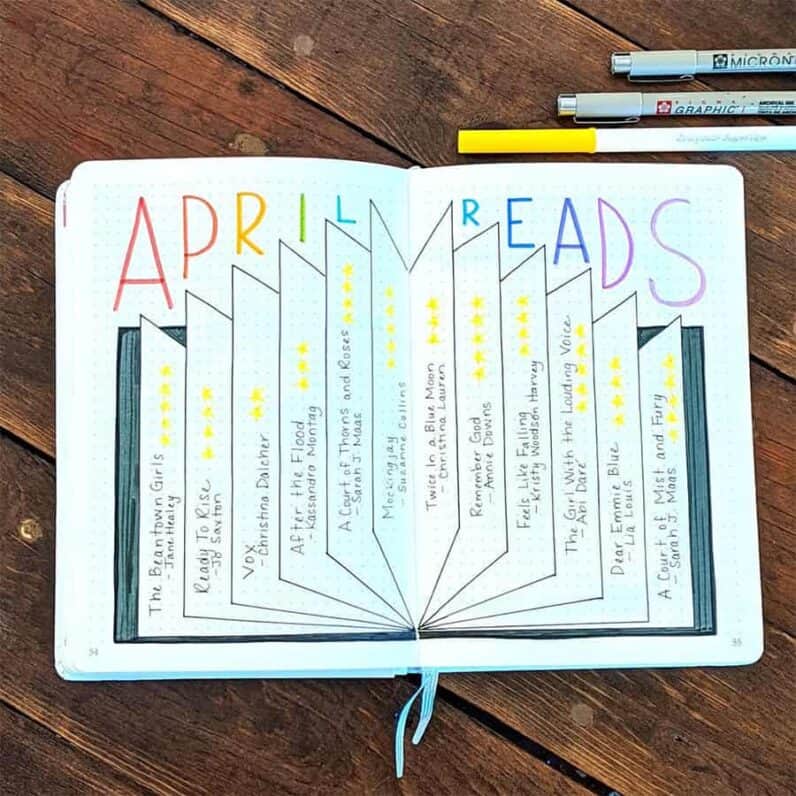 APRIL READS
The Beantown Girls
- Jane Healey
Ready To Rise
- Jo Saxton
VOX
- Christina Dalcher
After the Flood
- Kassandra Montag
A Court of Thorns and Roses
- Sarah J. Maas
Mockingjay
- Suzanne Collins
Twice In a Blue Moon
- Christina Lauren
Remember God
- Annie Downs
Feels Like Falling
- Kristy Woodson Harvey
The Girl With the Louding Voice
- Abi Daré
Dear Emmie Blue
- Lia Louis
A Court of Mist and Fury
- Sarah J. Maas
54
55
MICRON
GRAPHIC 1